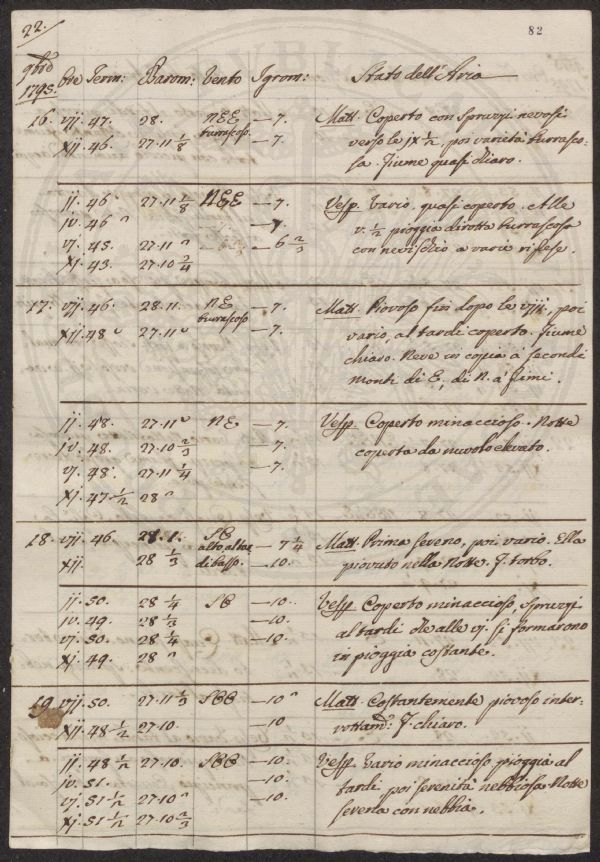 22.
82
9bre
1793. Ore Term: Barom: Vento Igrom: Stato dell'Aria
16. vij. 47. 28. NEE — 7. Matt. Coperto con spruzzi nevosi
burrascoso. verso le jx ½, poi varietà burrasco-
xij. 46. 27.11 ⅛ — 7. sa. Fiume quasi chiaro.
ij. 46 27.11 ⅛ NEE — 7. Vesp. Vario, quasi coperto. Alle
iv. 46 — 7. v. ½ pioggia dirotta burrascosa
vj. 45. 27.11 — 6 ⅔ con nevischio a varie riprese.
xj. 43. 27.10 ¾
17. vij. 46. 28.11. NE — 7. Matt. Piovoso fin dopo le viij, poi
burrascoso
xij. 48 27.11 — 7. vario, al tardi coperto. Fiume
chiaro. Neve in copia à secondi
monti di E, di N. a' primi.
ij. 48. 27.11 NE — 7. Vesp. Coperto minaccioso. Notte
iv. 48. 27.10 ⅔ 7. coperta da nuvolo elevato.
vj. 48. 27.11 ¼ — 7.
xj. 47 ½ 28
18. vij. 46. 28.1. SE — 7 ¼ Matt. Prima sereno, poi vario. Ella
alto, al tar
xij. 28 ⅓ di basso. — 10. piovuto nella Notte. F. torbo.
ij. 50. 28 ¼ SE — 10. Vesp. Coperto minaccioso, spruzzi
iv. 49. 28 ⅓ — 10. al tardi che alle vj. si formarono
vj. 50. 28 ¼ — 10. in pioggia costante.
xj. 49. 28
19. vij. 50. 27.11 ⅓ SEE — 10 Matt. Costantemente piovoso inter-
xij. 48 ½ 27.10. — 10 rottamte. F. chiaro.
ij. 48 ½ 27.10 SEE — 10. Vesp. Vario minaccioso, pioggia al
iv. 51. — 10. tardi poi serenità nebbiosa. Notte
vj. 51 ½ 27.10 — 10. serena con nebbia.
xj. 51 ½ 27.10 ⅔